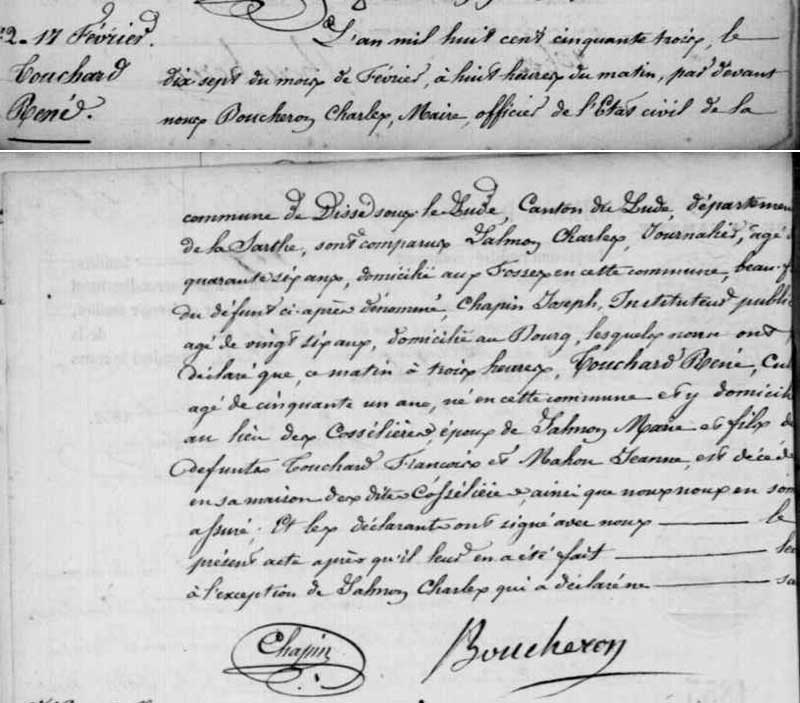 2. 17 Février.
Touchard
René.
L'an mil huit cent cinquante trois, le
dix sept du mois de Février, à huit heures du matin, par devant
nous Boucheron Charles, Maire, officier de l'Etat civil de la
commune de Dissé sous le Lude, Canton du Lude, départemen
de la Sarthe, sont comparus Salmon Charles, Journalier, agé
quarante six ans, domicilié aux Fosses en cette commune, beau-f
du défunt ci-après dénommé, Chapin Joseph, Instituteur public
agé de vingt six ans, domicilié au Bourg, lesquels nous ont
déclaré que, ce matin à trois heures, Touchard René, Cul
agé de cinquante un ans, né en cette commune et y domicil
au lieu des Cossélières, époux de Salmon Marie et fils de
defunts Touchard François et Mahou Jeanne, est décédé
en sa maison des dites Cossélières, ainsi que nous nous en som
assuré. Et les déclarants ont signé avec nous le
présent acte après qu'il leur en a été fait lec
à l'exception de Salmon Charles qui a déclaré ne sa
Chapin Boucheron